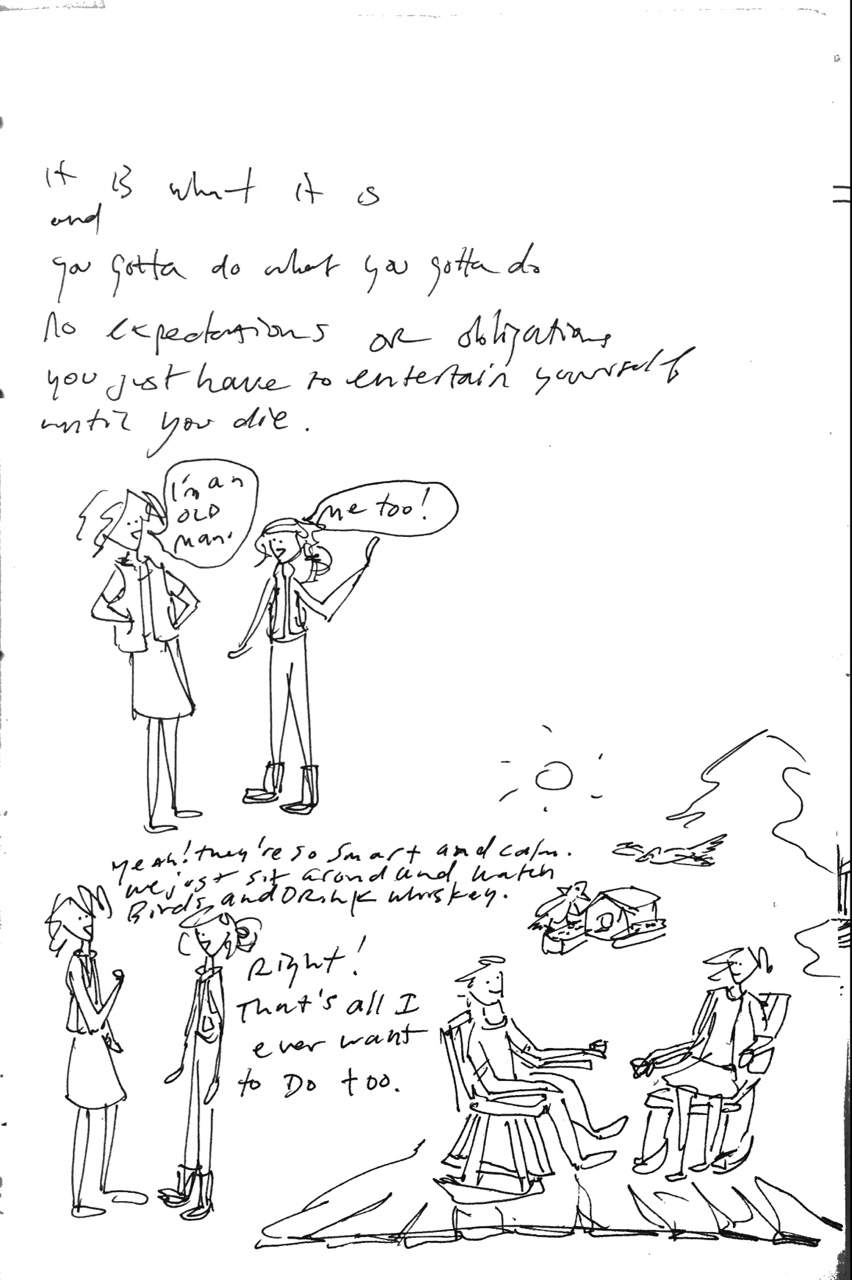 it is what it is
and
you gotta do what you gotta do
no expectations or obligations
you just have to entertain yourself
until you die.
I'm an
OLD
man!
me too!
Yeah! they're so smart and calm.
we just sit around and watch
Birds and DRink whiskey.
Right!
That's all I
ever want
to Do too.